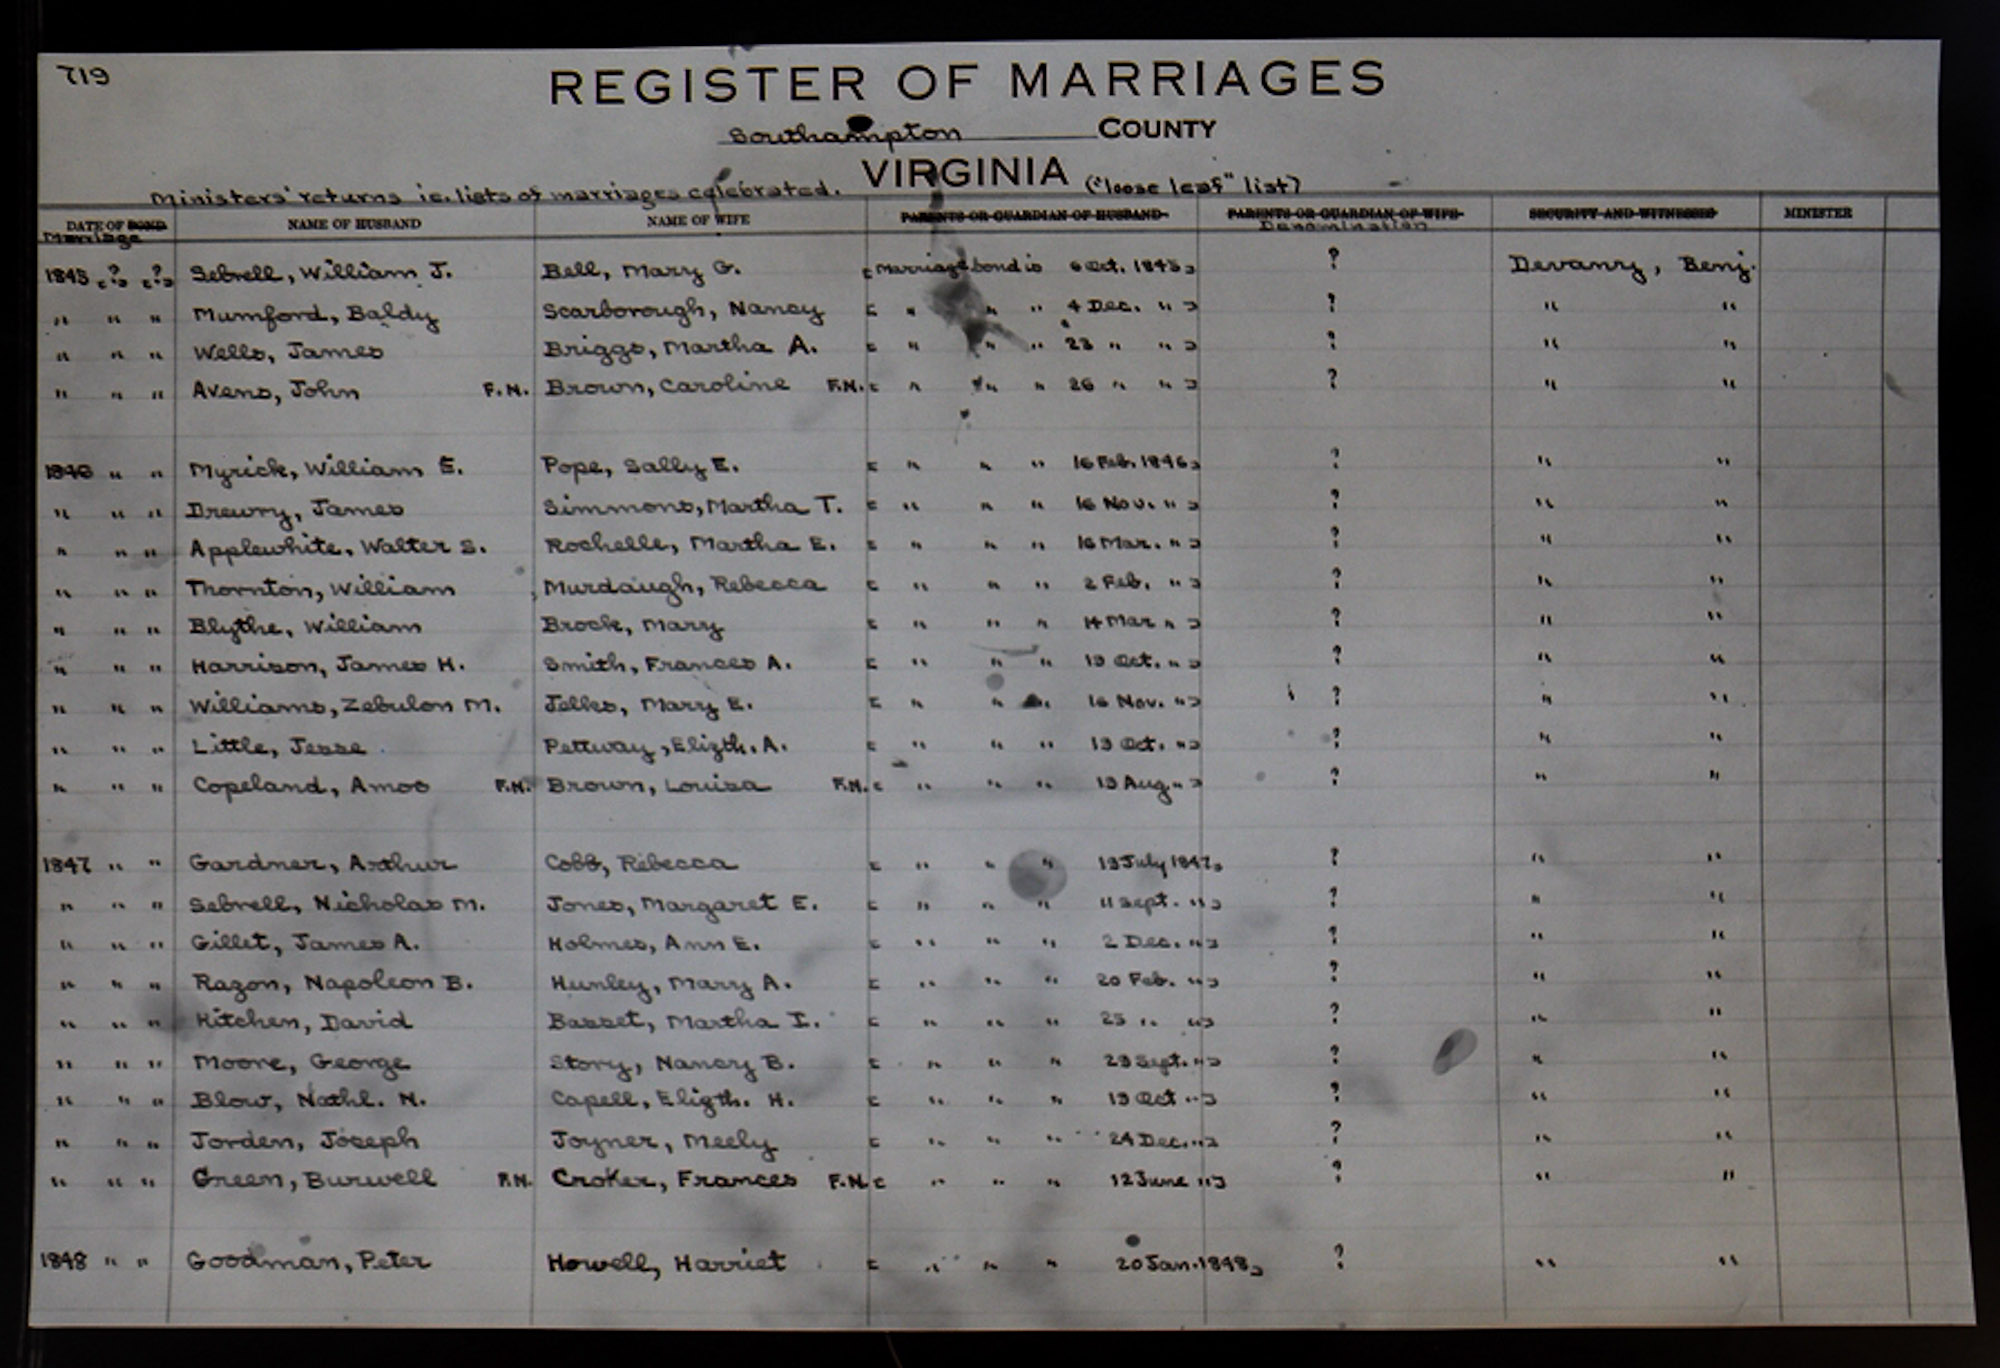 719
REGISTER OF MARRIAGES
Southampton COUNTY
VIRGINIA ("loose leaf" list)
Ministers' returns ie. lists of marriages celebrated.
DATE OF BOND Marriage NAME OF HUSBAND NAME OF WIFE PARENTS OR GUARDIAN OF HUSBAND PARENTS OR GUARDIAN OF WIFE Denomination SECURITY AND WITNESSES MINISTER
1845 [?] [?] Sebrell, William J. Bell, Mary G. [Marriage bond is 6 Oct. 1845] ? Devanry, Benj.
" " " Mumford, Baldy Scarborough, Nancy [ " " " 4 Dec. " ] ? " "
" " " Wells, James Briggs, Martha A. [ " " " 23 " " ] ? " "
" " " Avens, John F.N. Brown, Caroline F.N. [ " " " 26 " " ] ? " "
1846 " " Myrick, William E. Pope, Sally E. [ " " " 16 Feb. 1846] ? " "
" " " Drewry, James Simmons, Martha T. [ " " " 16 Nov. " ] ? " "
" " " Applewhite, Walter S. Rochelle, Martha E. [ " " " 16 Mar. " ] ? " "
" " " Thornton, William Murdaugh, Rebecca [ " " " 2 Feb. " ] ? " "
" " " Blythe, William Brock, Mary [ " " " 14 Mar " ] ? " "
" " " Harrison, James H. Smith, Frances A. [ " " " 19 Oct. " ] ? " "
" " " Williams, Zebulon M. Jelks, Mary E. [ " " " 16 Nov. " ] ? " "
" " " Little, Jesse Pettway, Elizth. A. [ " " " 19 Oct. " ] ? " "
" " " Copeland, Amos F.N. Brown, Louisa F.N. [ " " " 19 Aug. " ] ? " "
1847 " " Gardner, Arthur Cobb, Rebecca [ " " " 19 July 1847] ? " "
" " " Sebrell, Nicholas M. Jones, Margaret E. [ " " " 11 Sept. " ] ? " "
" " " Gillet, James A. Holmes, Ann E. [ " " " 2 Dec. " ] ? " "
" " " Razon, Napoleon B. Hunley, Mary A. [ " " " 20 Feb. " ] ? " "
" " " Kitchen, David Basset, Martha I. [ " " " 25 " " ] ? " "
" " " Moore, George Story, Nancy B. [ " " " 29 Sept. " ] ? " "
" " " Blow, Nathl. N. Capell, Elizth. H. [ " " " 19 Oct " ] ? " "
" " " Jorden, Joseph Joyner, Meely [ " " " 24 Dec. " ] ? " "
" " " Green, Burwell F.N. Croker, Frances F.N. [ " " " 12 June " ] ? " "
1848 " " Goodman, Peter Howell, Harriet [ " " " 20 Jan. 1848] ? " "